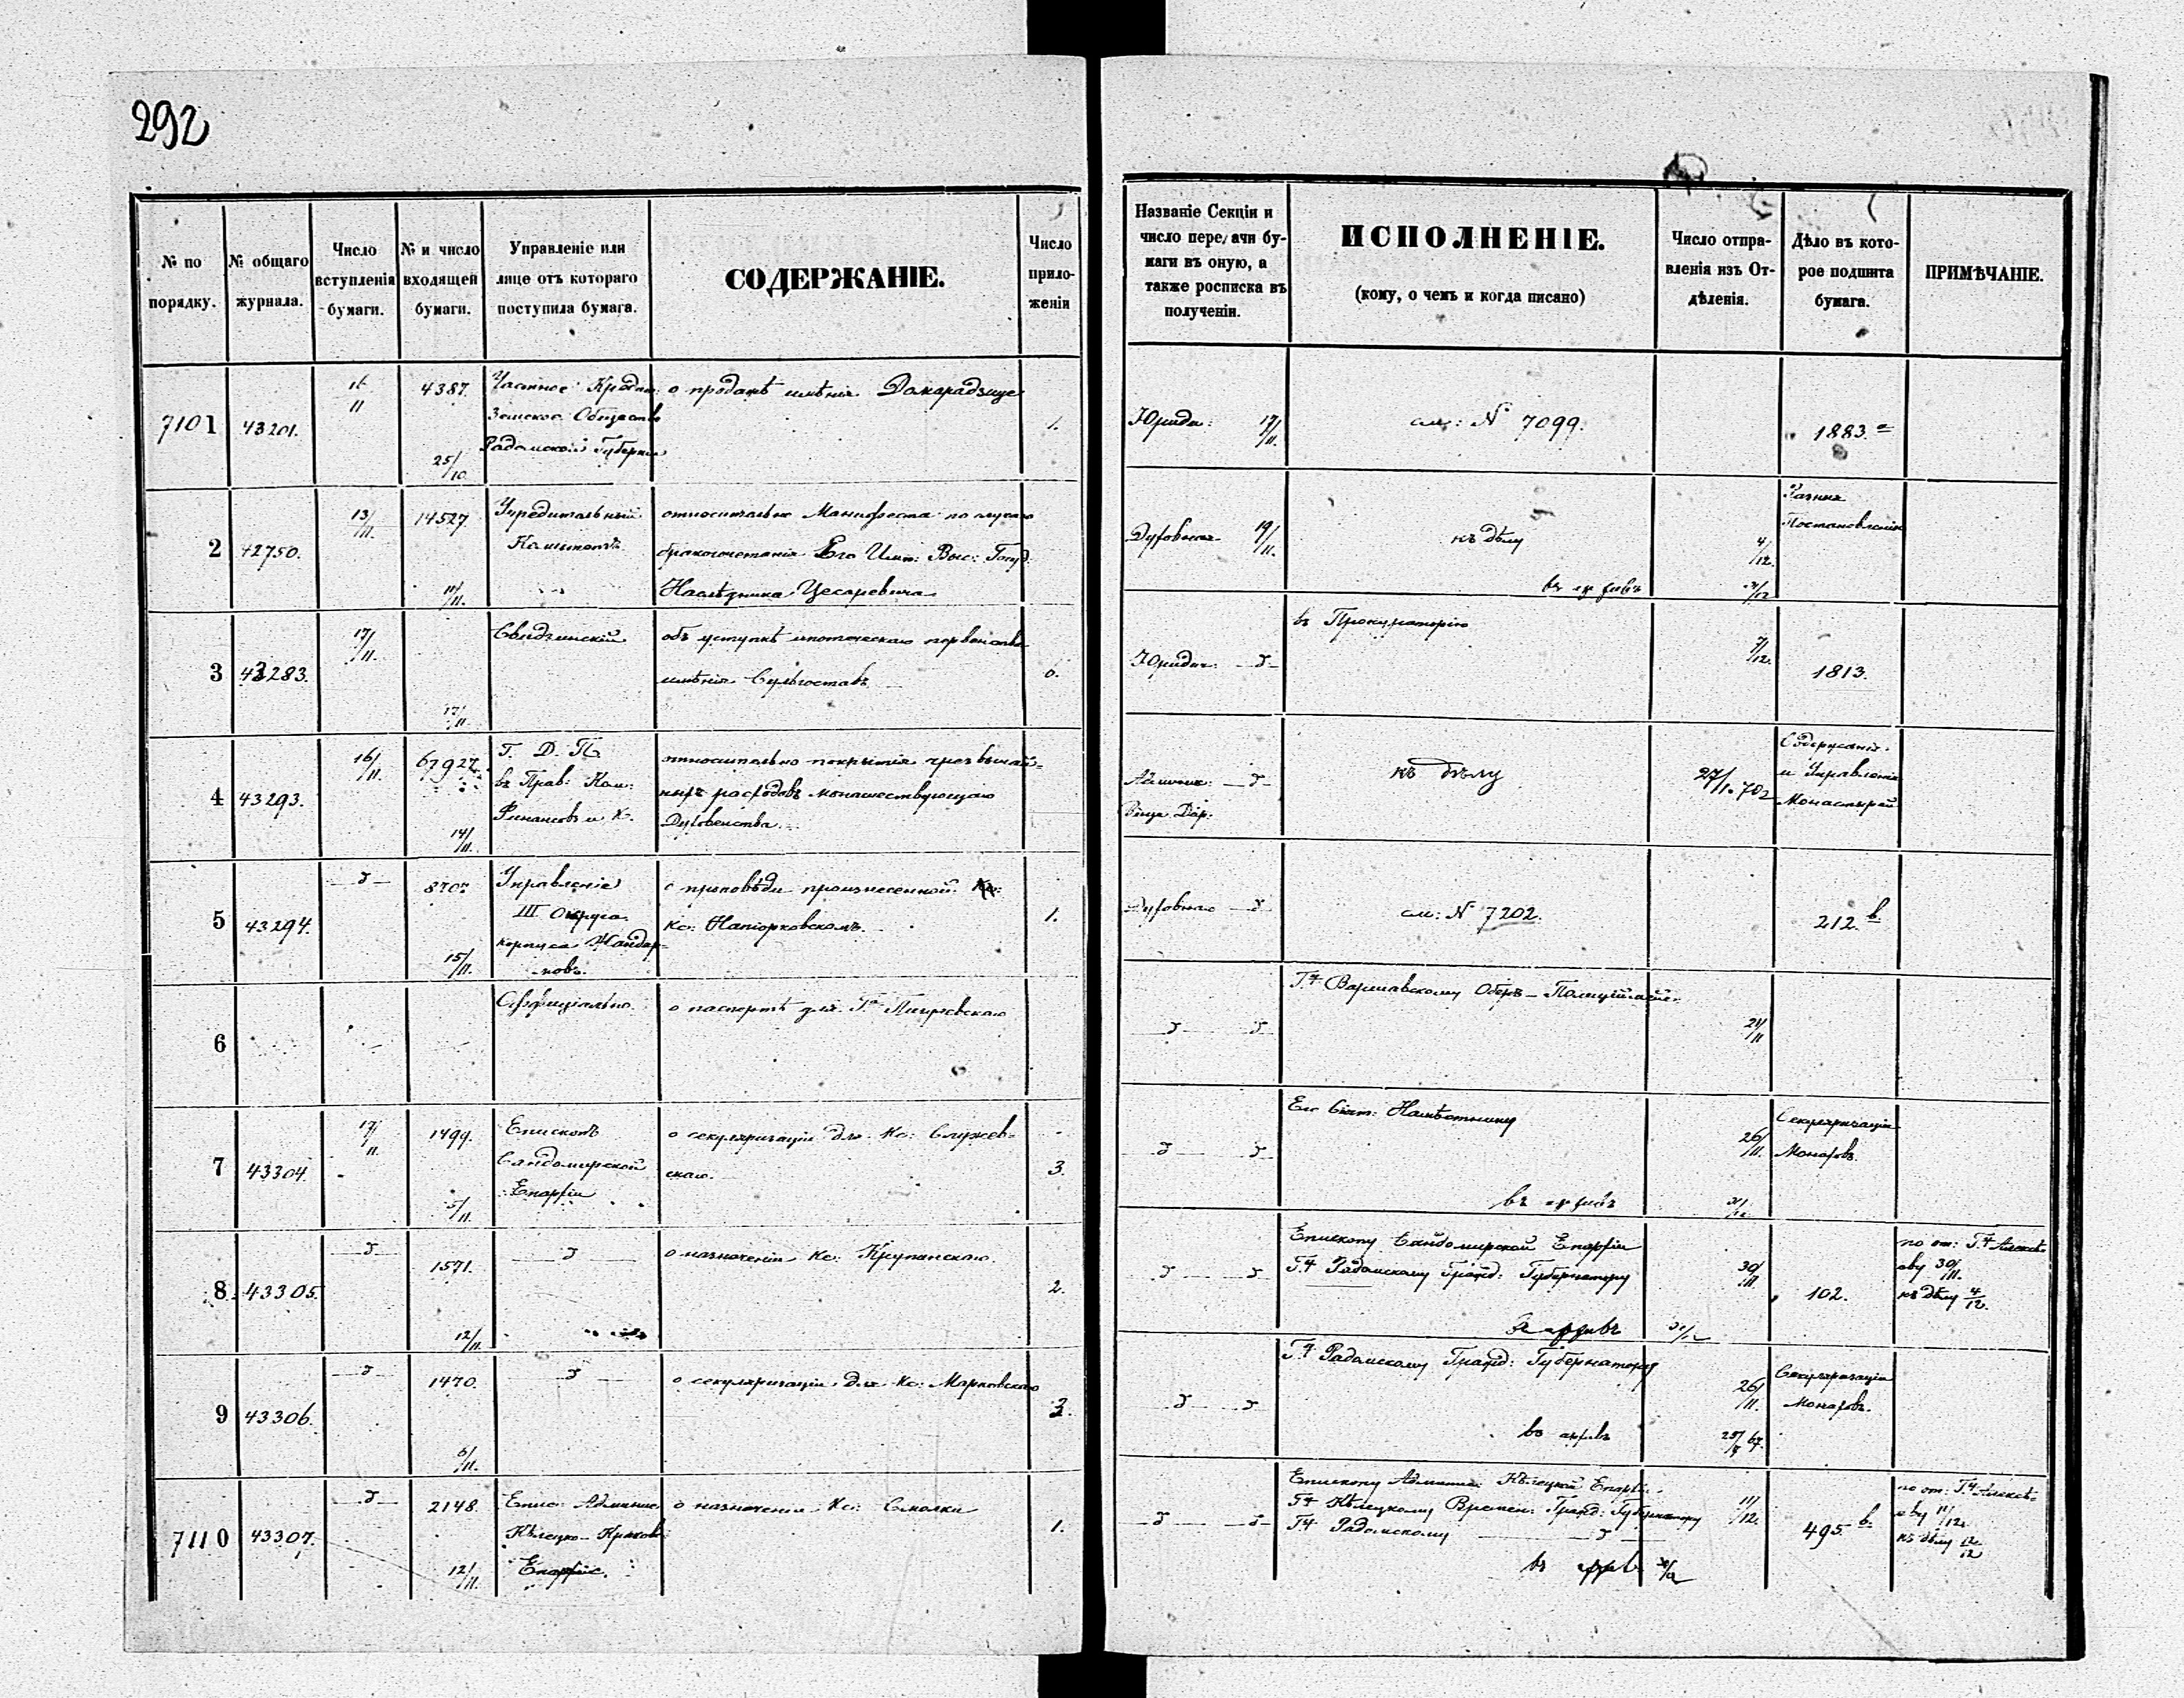 292
№ по порядку.
№ общаго журнала.
Число вступленія бумаги.
№ и число входящей бумаги.
Управленіе или лице отъ котораго поступила бумага.
СОДЕРЖАНІЕ.
Число приложеній
Названіе Секціи и число передачи бумаги въ оную, а также росписка въ полученіи.
ИСПОЛНЕНІЕ.
(кому, о чемъ и когда писано)
Число отправленія изъ Отдѣленія.
Дѣло въ которое подшита бумага.
ПРИМѢЧАНІЕ.
7101 43201. 16/11 4387. 25/10
Частное Кредит:
Земское Общество
Радомской Губерніи
о продажѣ имѣнія Домарадзице
1.
Юриди: 17/11.
см: № 7099.
1883.a
2 42750. 13/11. 14527
Учредительный
Комитетъ
относительно Манифеста по случаю
бракосочетанія Его Имп: Выс: Госуд:
Наслѣдника Цесаревича
Духовная 19/11.
къ дѣлу 4/12.
въ архивъ
Разныя
Постановленія
3 43283. 17/11. 17/11
Свидзинскій
объ уступкѣ ипотическаго первенства
имѣнія Сульгостовъ
6.
Юридич: —д—
въ Прокураторію
7/12.
1813.
4 43293. 16/11. 67927. 14/11.
Г. Д. П.
въ Прав: Ком:
Финансовъ и К.
относительно покрытія чрезвычай-
ныхъ расходовъ монашествующаго
Духовенства.
—д—
къ дѣлу
27/1. 70
Содержаніе
и Управленіе
Монастырей
5 43294. —д— 8707 15/11.
Управленіе
III Округа
корпуса Жандар-
мовъ.
о проповѣди произнесенной
Кс: Напіорковскомъ.
1.
Духовная —д—
см: № 7202.
212.b
6
Оффиціально.
о паспортѣ для Г.
—д— д—
Г.ну Варшавскому Оберъ-Полиціймей:
21/11
7 43304. 17/11. 1499. 5/11.
Епископъ
Сандомирской
Епархіи
о секуляризаціи для Кс: Служев-
скаго.
3.
—д— д—
Его Сіят: Намѣстнику
26/11.
въ архивъ
Секуляризація
Монаховъ.
8 43305. —д— 1571. 12/11.
—д—
о назначеніи Кс: Крупинскаго.
2.
—д— д—
Епископу Сандомирской Епархіи
Г.ну Радомскому Гражд: Губернатору
30/11
въ архивъ
102.
по от: Г.ну Алексѣ-
еву 30/11.
къ дѣлу 4/12.
9 43306. —д— 1470. 5/11.
—д—
о секуляризаціи для Кс: Марковскаго
3.
—д— д—
Г.ну Радомскому Гражд: Губернатору
26/11.
въ архивъ
Секуляризація
Монаховъ.
7110 43307. —д— 2148. 12/11.
Епис: Админис:
Кѣлецко-Краков:
Епархіи.
о назначеніи Кс: Смолки
1.
—д— д—
Епископу Админис: Кѣлецкой Епархіи
Г.ну Кѣлецкому Времен: Гражд: Губернатору
Г.ну Радомскому —д—
11/12.
въ архивъ
495.b.
по от: Г.ну Алексѣ-
еву 11/12.
къ дѣлу 12/12